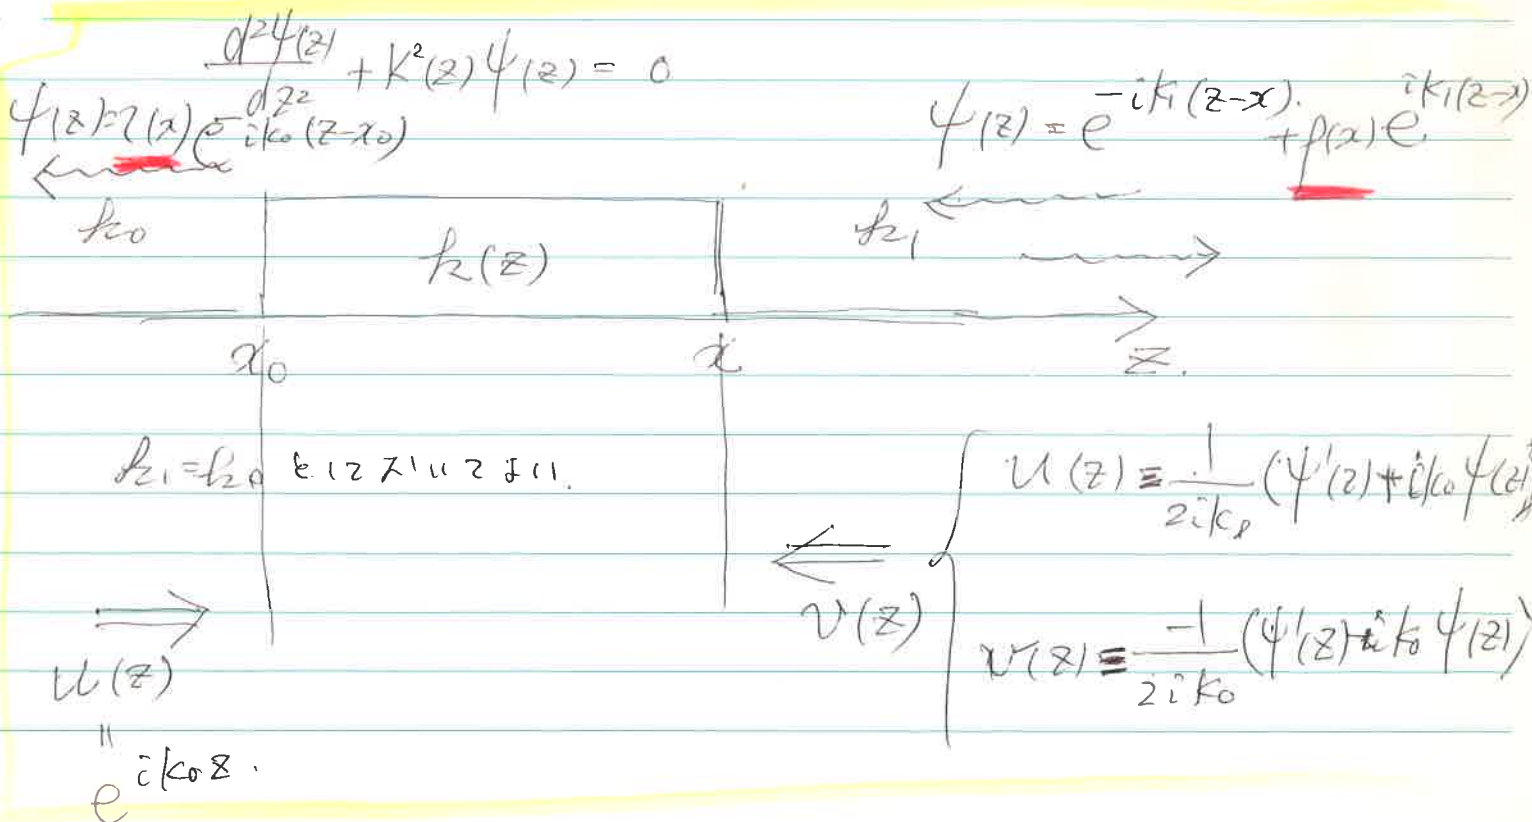 d²ψ(z)/dz² + k²(z)ψ(z) = 0
ψ(z)=τ(x)e^{-ik₀(z-x₀)}
ψ(z) = e^{-ik₁(z-x)} + ρ(x)e^{ik₁(z-x)}
k₀
k(z)
k₁
x₀
x
z.
k₁=k₀ としておいてよい.
u(z) ≡ 1/2ik₀ (ψ'(z)+ik₀ψ(z))
v(z)
v(z) ≡ -1/2ik₀ (ψ'(z)-ik₀ψ(z))
u(z)
||
e^{ik₀z}.